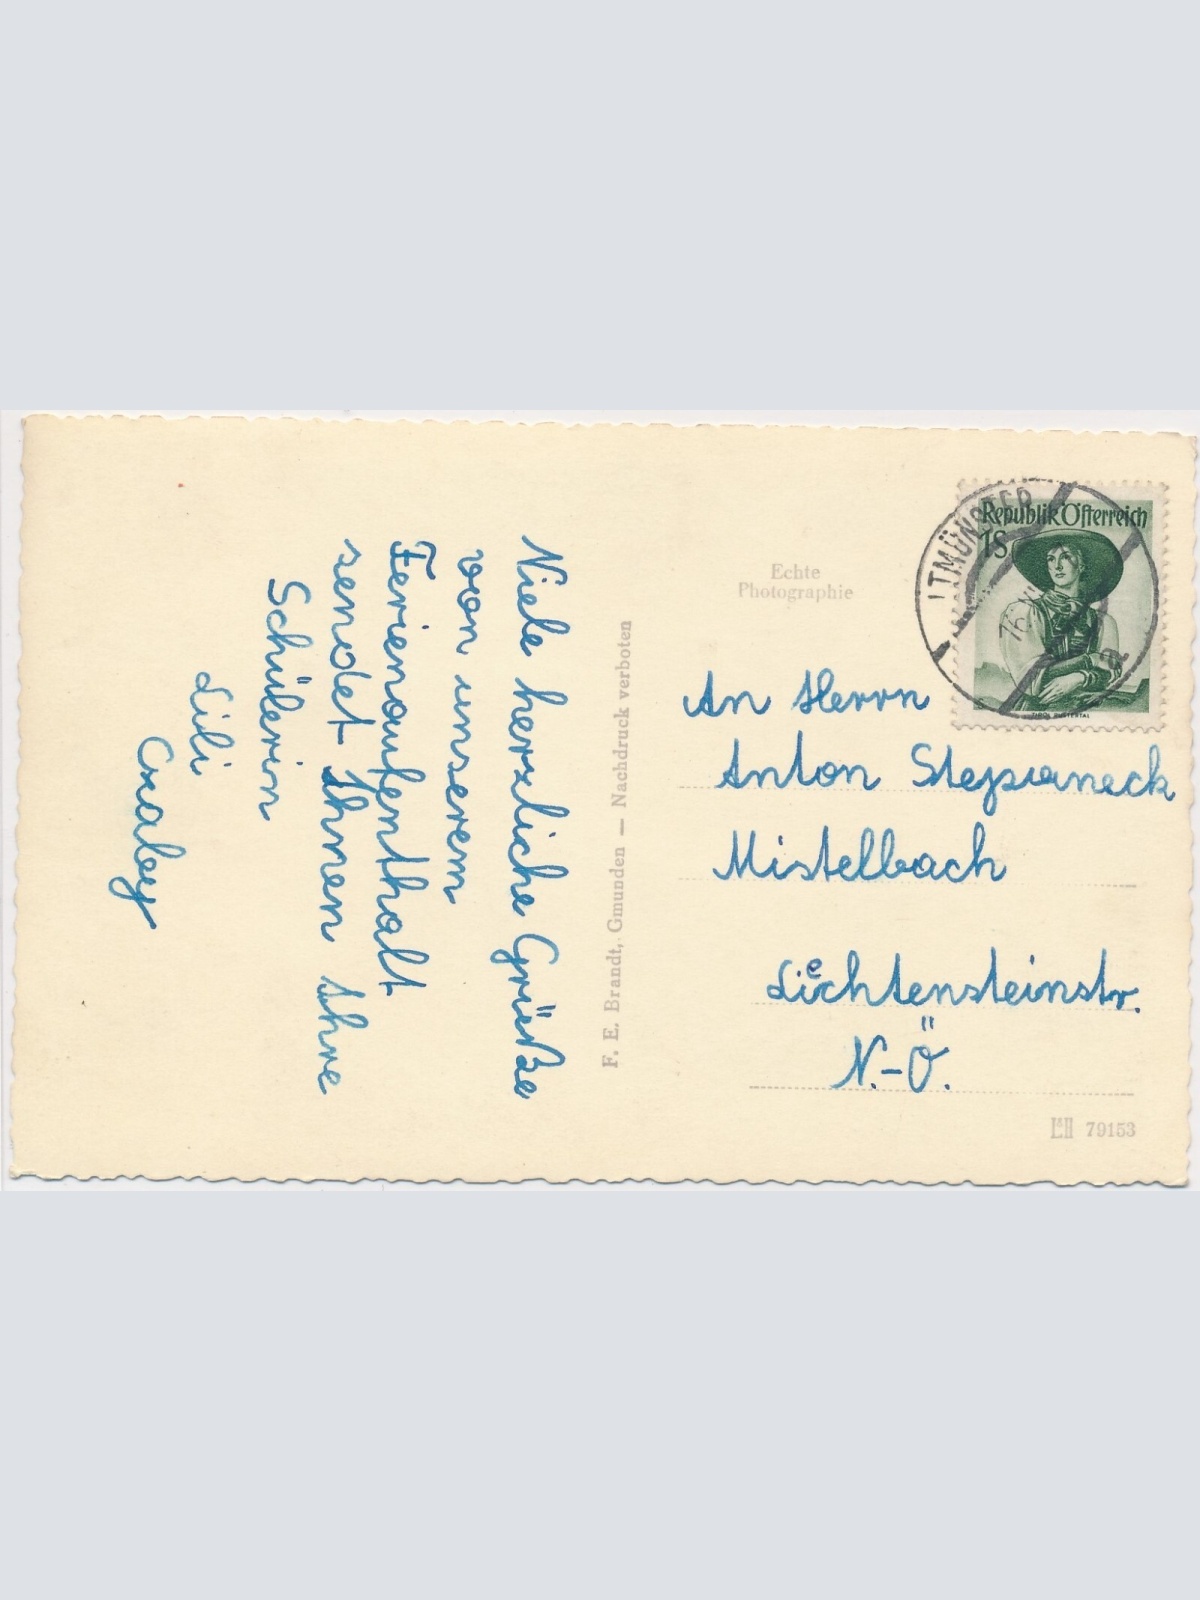 Viele herzliche Grüße
von unserem
Ferienaufenthalt
sendet Ihnen Ihre
Schülerin
Lili
F. E. Brandt, Gmunden — Nachdruck verboten
Echte
Photographie
Republik Österreich
1S
An Herrn
Anton
Mistelbach
Liechtensteinstr.
N.-Ö.
79153